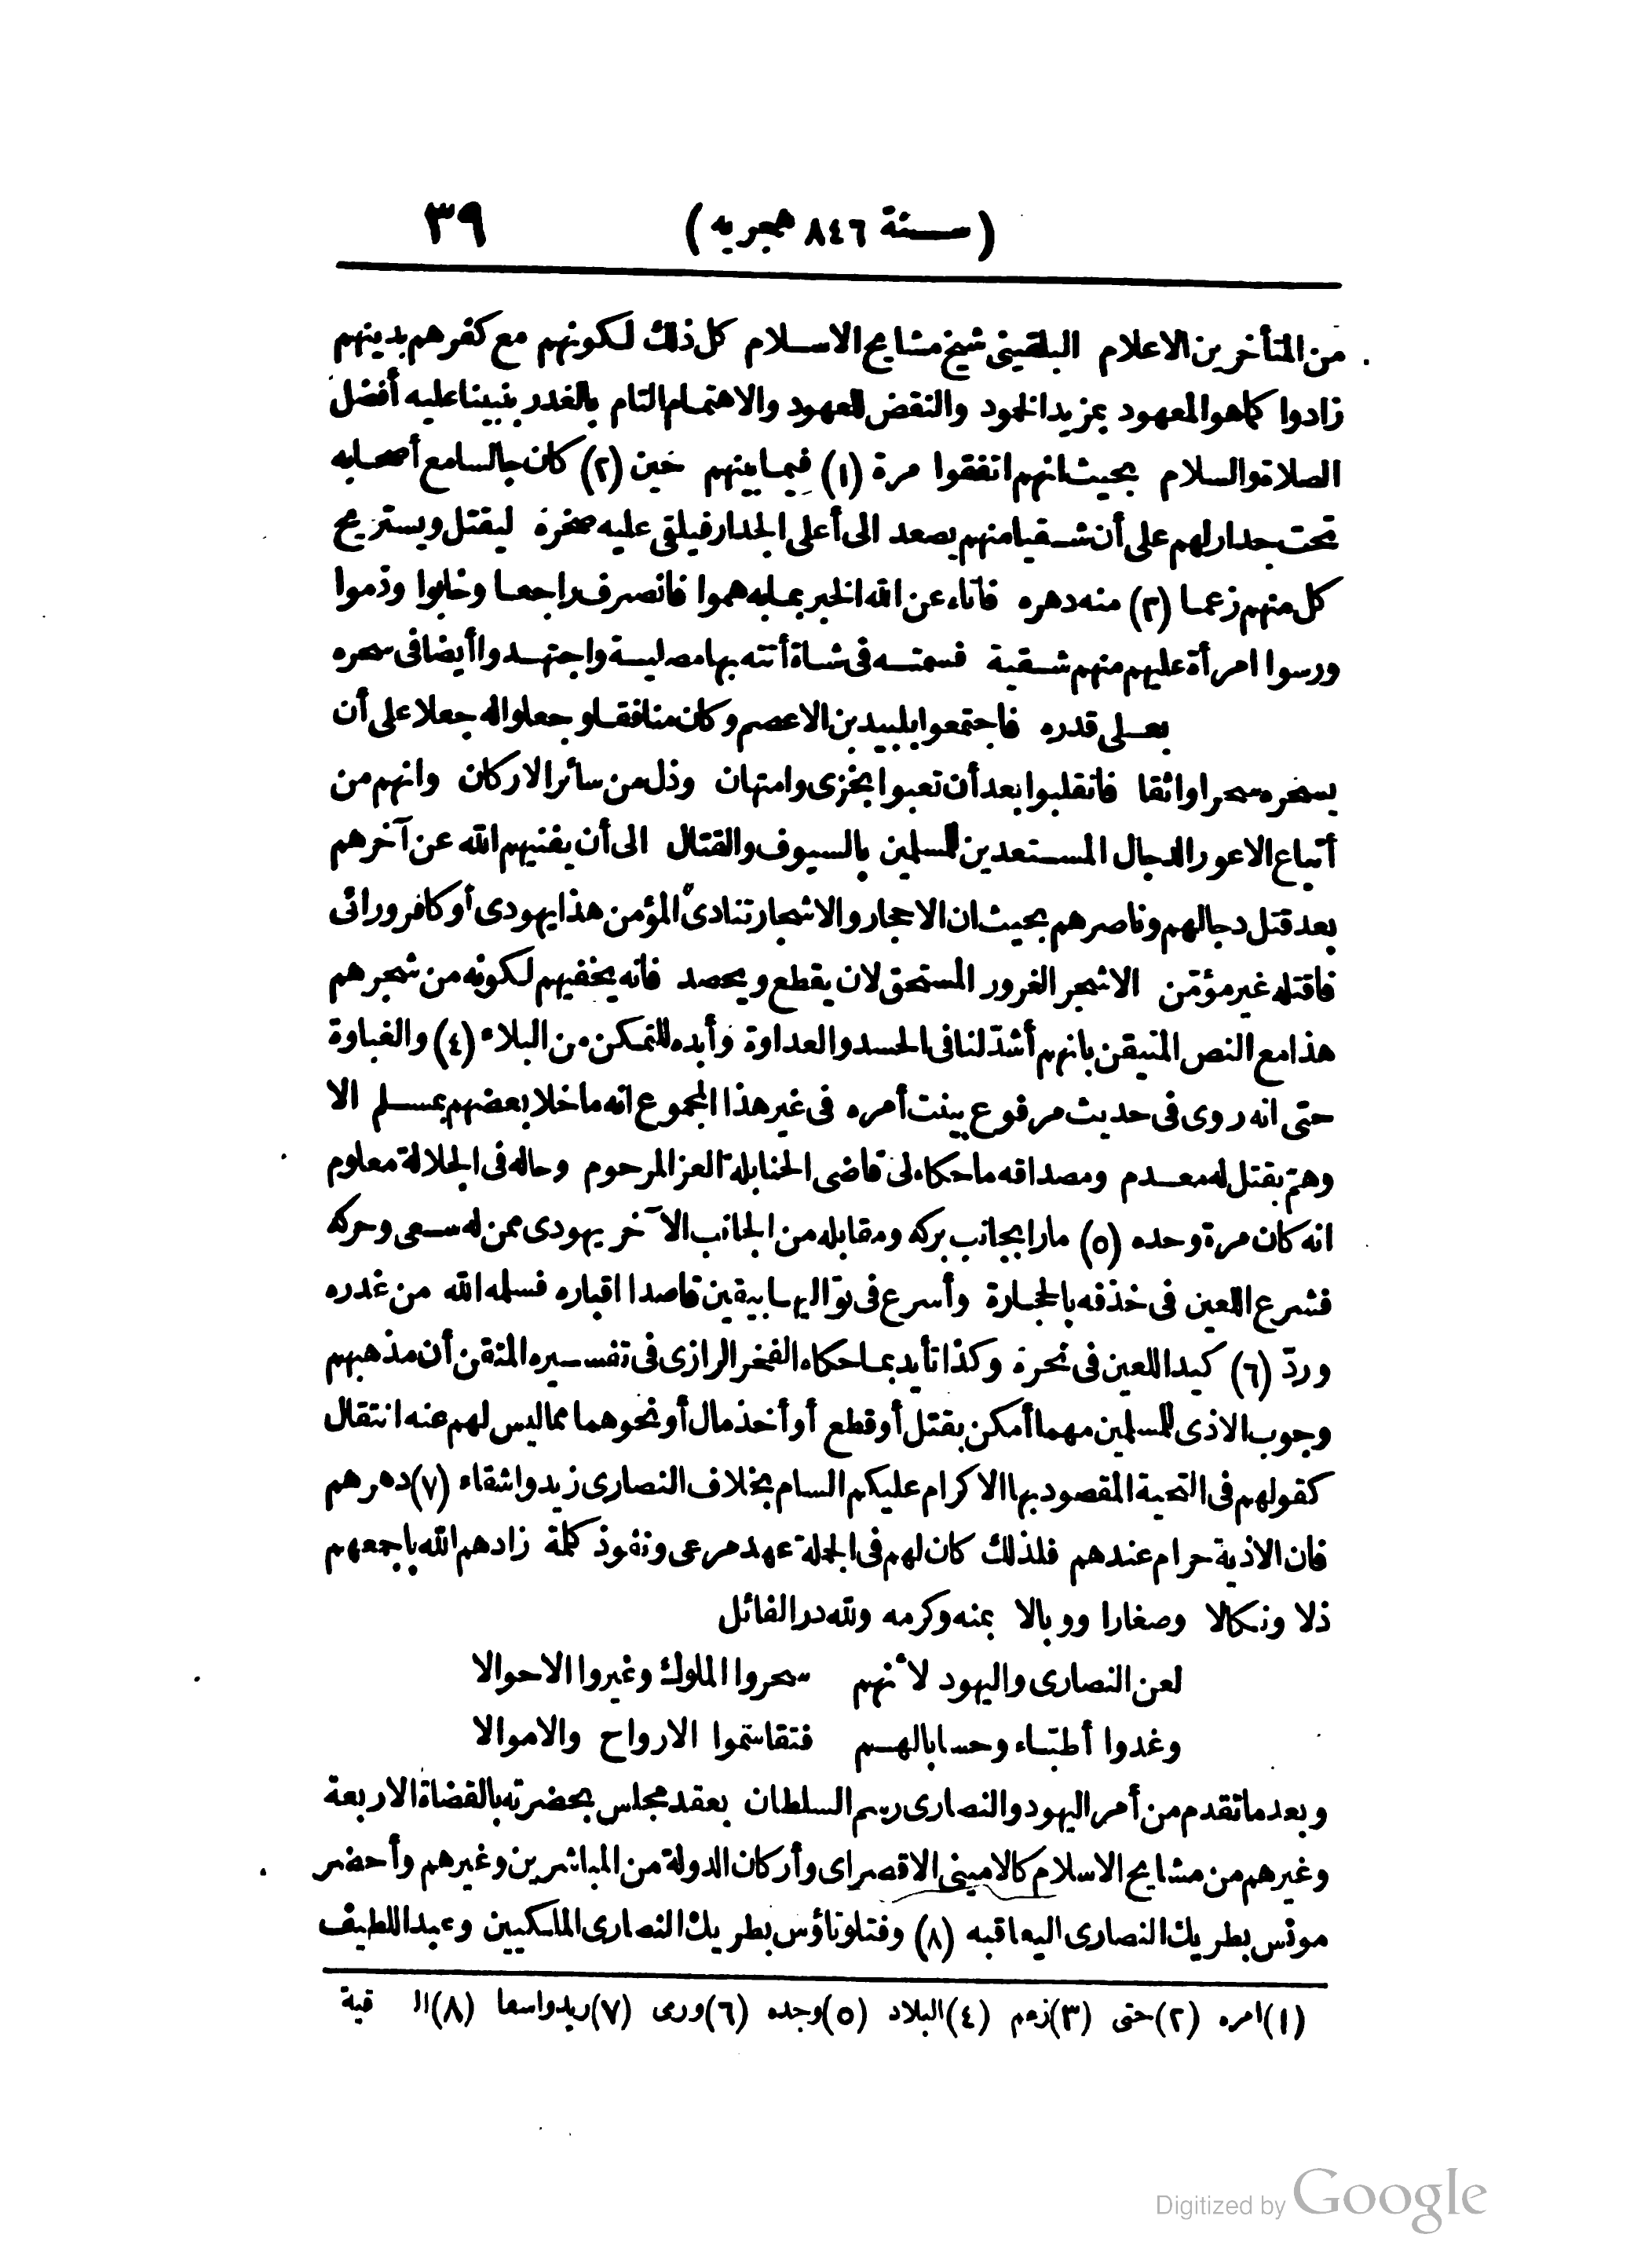 (سنة ٨٤٦ هجريه) ٣٩
من المتأخرين الاعلام البلقينى شيخ مشايخ الاسلام كل ذلك لكونهم مع كفرهم بدينهم
زادوا كما هو المعهود بمزيد الجود والنقض للعهود والاهتمام التام بالغدر بنبينا عليه أفضل
الصلاة والسلام بحيث انهم اتفقوا مرة (١) فيما بينهم حين (٢) كان جالسا مع أصحابه
تحت جدار لهم على أن شقيا منهم يصعد الى أعلى الجدار فيلقى عليه صخرة ليقتل ويستريح
كل منهم زعما (٣) منه دهره فاتاه عن الله الخبر بما به هموا فانصرف راجعا وخابوا وذموا
ورسوا امرأة عليهم منهم شقية فسمته فى شاة أتته بها مصلية واجتهدوا أيضا فى سحره
بعلى قدره فاجتمعوا بلبيد بن الاعصم وكان منافقا وجعلوا له جعلا على أن
يسحره سحرا واثقا فانقلبوا بعد أن تعبوا بخزى وامتهان وذل من سائر الاركان وانهم من
أتباع الاعور الدجال المستعدين للمسلمين بالسيوف والقتال الى أن يفنيهم الله عن آخرهم
بعد قتل دجالهم وناصرهم بحيث ان الاحجار والاشجار تنادى المؤمن هذا يهودى أو كافر ورائى
فاقتله غير مؤتمن الا شجر الغرور المستحق لان يقطع ويحصد فانه يخفيهم لكونه من شجرهم
هذا مع النص المتيقن بانهم أشدّ لنا فى الحسد والعداوة وأبده للتمكن من البلاء (٤) والغباوة
حتى انه روى فى حديث مرفوع بينت أمره فى غير هذا المجموع انه ما خلا بعضهم بمسلم الا
وهمّ بقتل له معدم ومصداقه ما حكاه لى قاضى الحنابلة العز المرحوم وحاله فى الجلالة معلوم
انه كان مرة وحده (٥) مارا بجانب بركه ومقابله من الجانب الآخر يهودى ممن له سعى وحركه
فشرع اللعين فى خذفه بالحجارة وأسرع فى توّاليها بيقين قاصدا اقباره فسلمه الله من غدره
وردّ (٦) كيد اللعين فى نحره وكذا تأيد بما حكاه الفخر الرازى فى تفسيره المتقن أن مذهبهم
وجوب الاذى للمسلمين مهما أمكن بقتل أو قطع أو أخذ مال أو نحوهما مما ليس لهم عنه انتقال
كقولهم فى التحية المقصود بها الاكرام عليكم السام بخلاف النصارى زيدوا شقاء (٧) دهرهم
فان الاذية حرام عندهم فلذلك كان لهم فى الجلة عهد مرعى ونفوذ كلمة زادهم الله باجمعهم
ذلا ونكالا وصغارا ووبالا بمنه وكرمه ولله در القائل
لعن النصارى واليهود لأنهم سحروا الملوك وغيروا الاحوالا
وغدوا أطبّاء وحسابا لهم فتقاسموا الارواح والاموالا
وبعد ما تقدم من أمر اليهود والنصارى رسم السلطان بعقد مجلس بحضرته بالقضاة الاربعة
وغيرهم من مشايخ الاسلام كالامينى الاقصراى وأركان الدولة من المباشرين وغيرهم وأحضر
مونس بطريك النصارى اليعاقبه (٨) وفتلوتاؤس بطريك النصارى الملكيين وعبد اللطيف
(١) امره (٢) حتى (٣) زعم (٤) البلاد (٥) وجده (٦) ورى (٧) ريدواسعا (٨) ال قبة
Digitized by Google